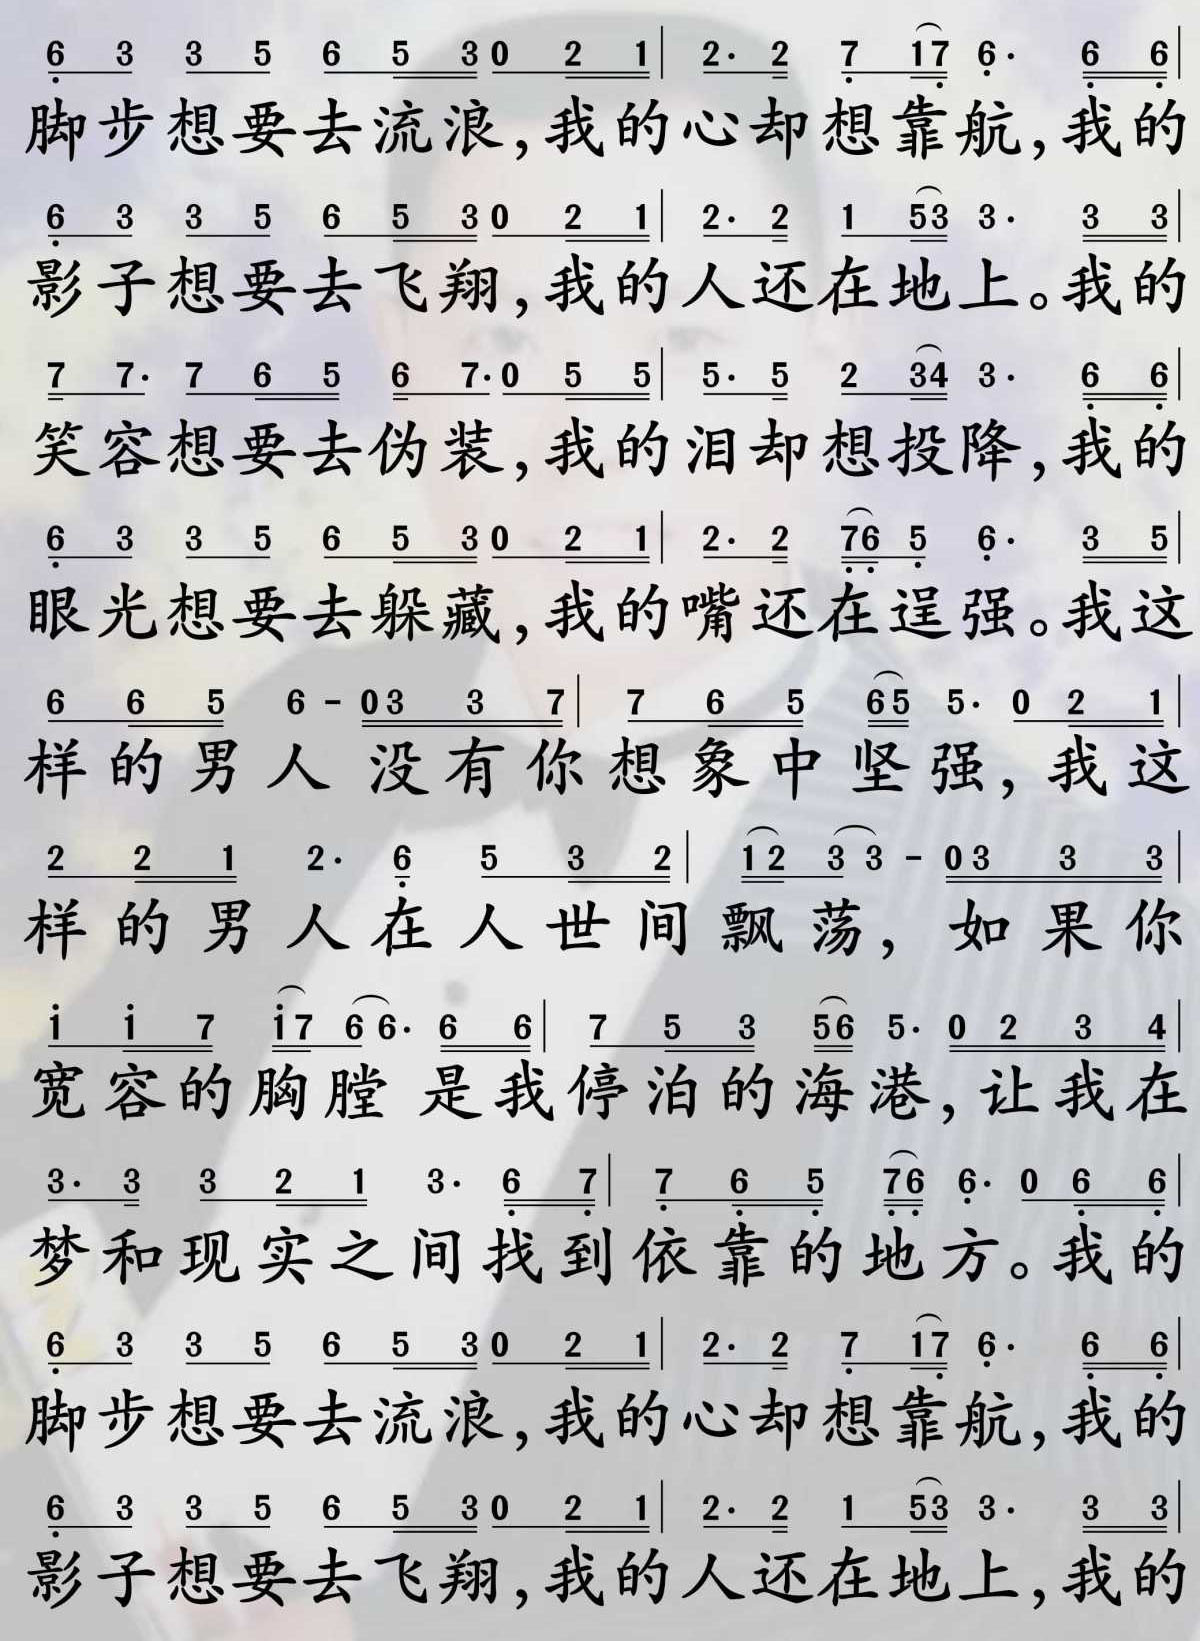 6 3 3 5 6 5 3 0 2 1 | 2· 2 7 17 6· 6 6 |
脚步想要去流浪,我的心却想靠航,我的
6 3 3 5 6 5 3 0 2 1 | 2· 2 1 53 3· 3 3 |
影子想要去飞翔,我的人还在地上。我的
7 7· 7 6 5 6 7· 0 5 5 | 5· 5 2 34 3· 6 6 |
笑容想要去伪装,我的泪却想投降,我的
6 3 3 5 6 5 3 0 2 1 | 2· 2 76 5 6· 3 5 |
眼光想要去躲藏,我的嘴还在逞强。我这
6 6 5 6 - 0 3 3 7 | 7 6 5 65 5· 0 2 1 |
样的男人没有你想象中坚强,我这
2 2 1 2· 6 5 3 2 | 12 3 3 - 0 3 3 3 |
样的男人在人世间飘荡,如果你
1 1 7 17 6 6· 6 6 | 7 5 3 56 5· 0 2 3 4 |
宽容的胸膛是我停泊的海港,让我在
3· 3 3 2 1 3· 6 7 | 7 6 5 76 6· 0 6 6 |
梦和现实之间找到依靠的地方。我的
6 3 3 5 6 5 3 0 2 1 | 2· 2 7 17 6· 6 6 |
脚步想要去流浪,我的心却想靠航,我的
6 3 3 5 6 5 3 0 2 1 | 2· 2 1 53 3· 3 3 |
影子想要去飞翔,我的人还在地上,我的